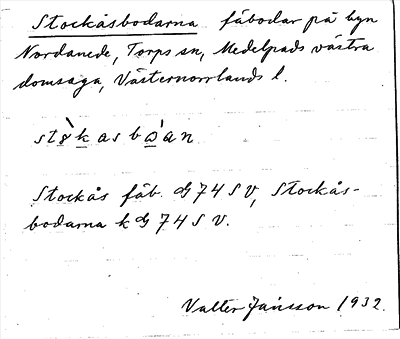 Stockåsbodarna fäbodar på byn
Nordanede, Torps sn, Medelpads västra
domsaga, Västernorrlands l.
stòkasbóan
Stockås fäb. G 74 S V, Stockås-
bodarna k G 74 S V.
Valter Jansson 1932.